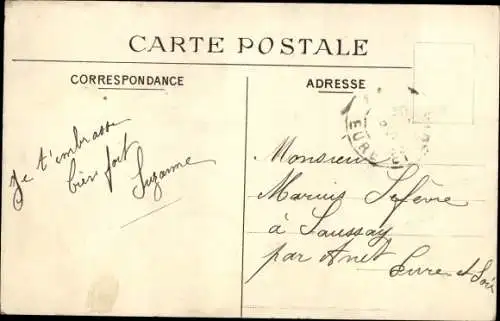 CARTE POSTALE
CORRESPONDANCE
ADRESSE
Je t'embrasse
bien fort
Suzanne
EURE
Monsieur
Marius Lefèvre
à Saussay
par Anet Eure et Loir